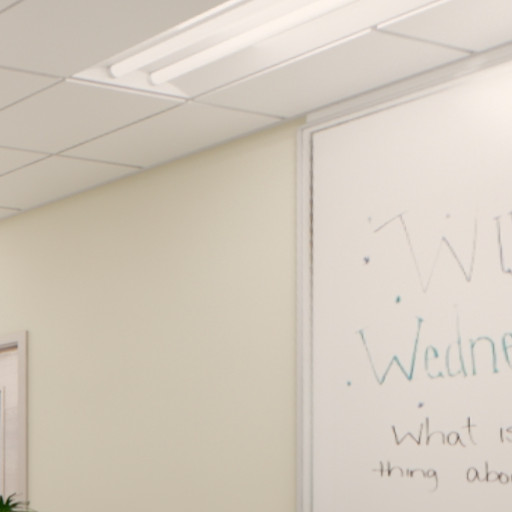 W
Wedne
What is
thing abo